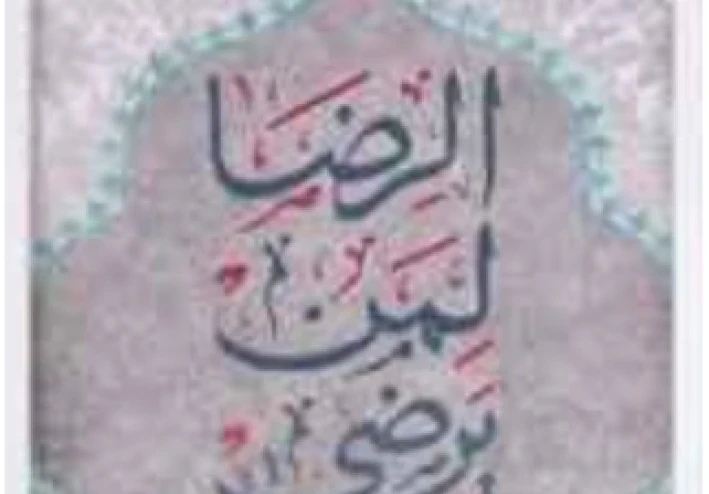 الرضا
لمن
يرضى